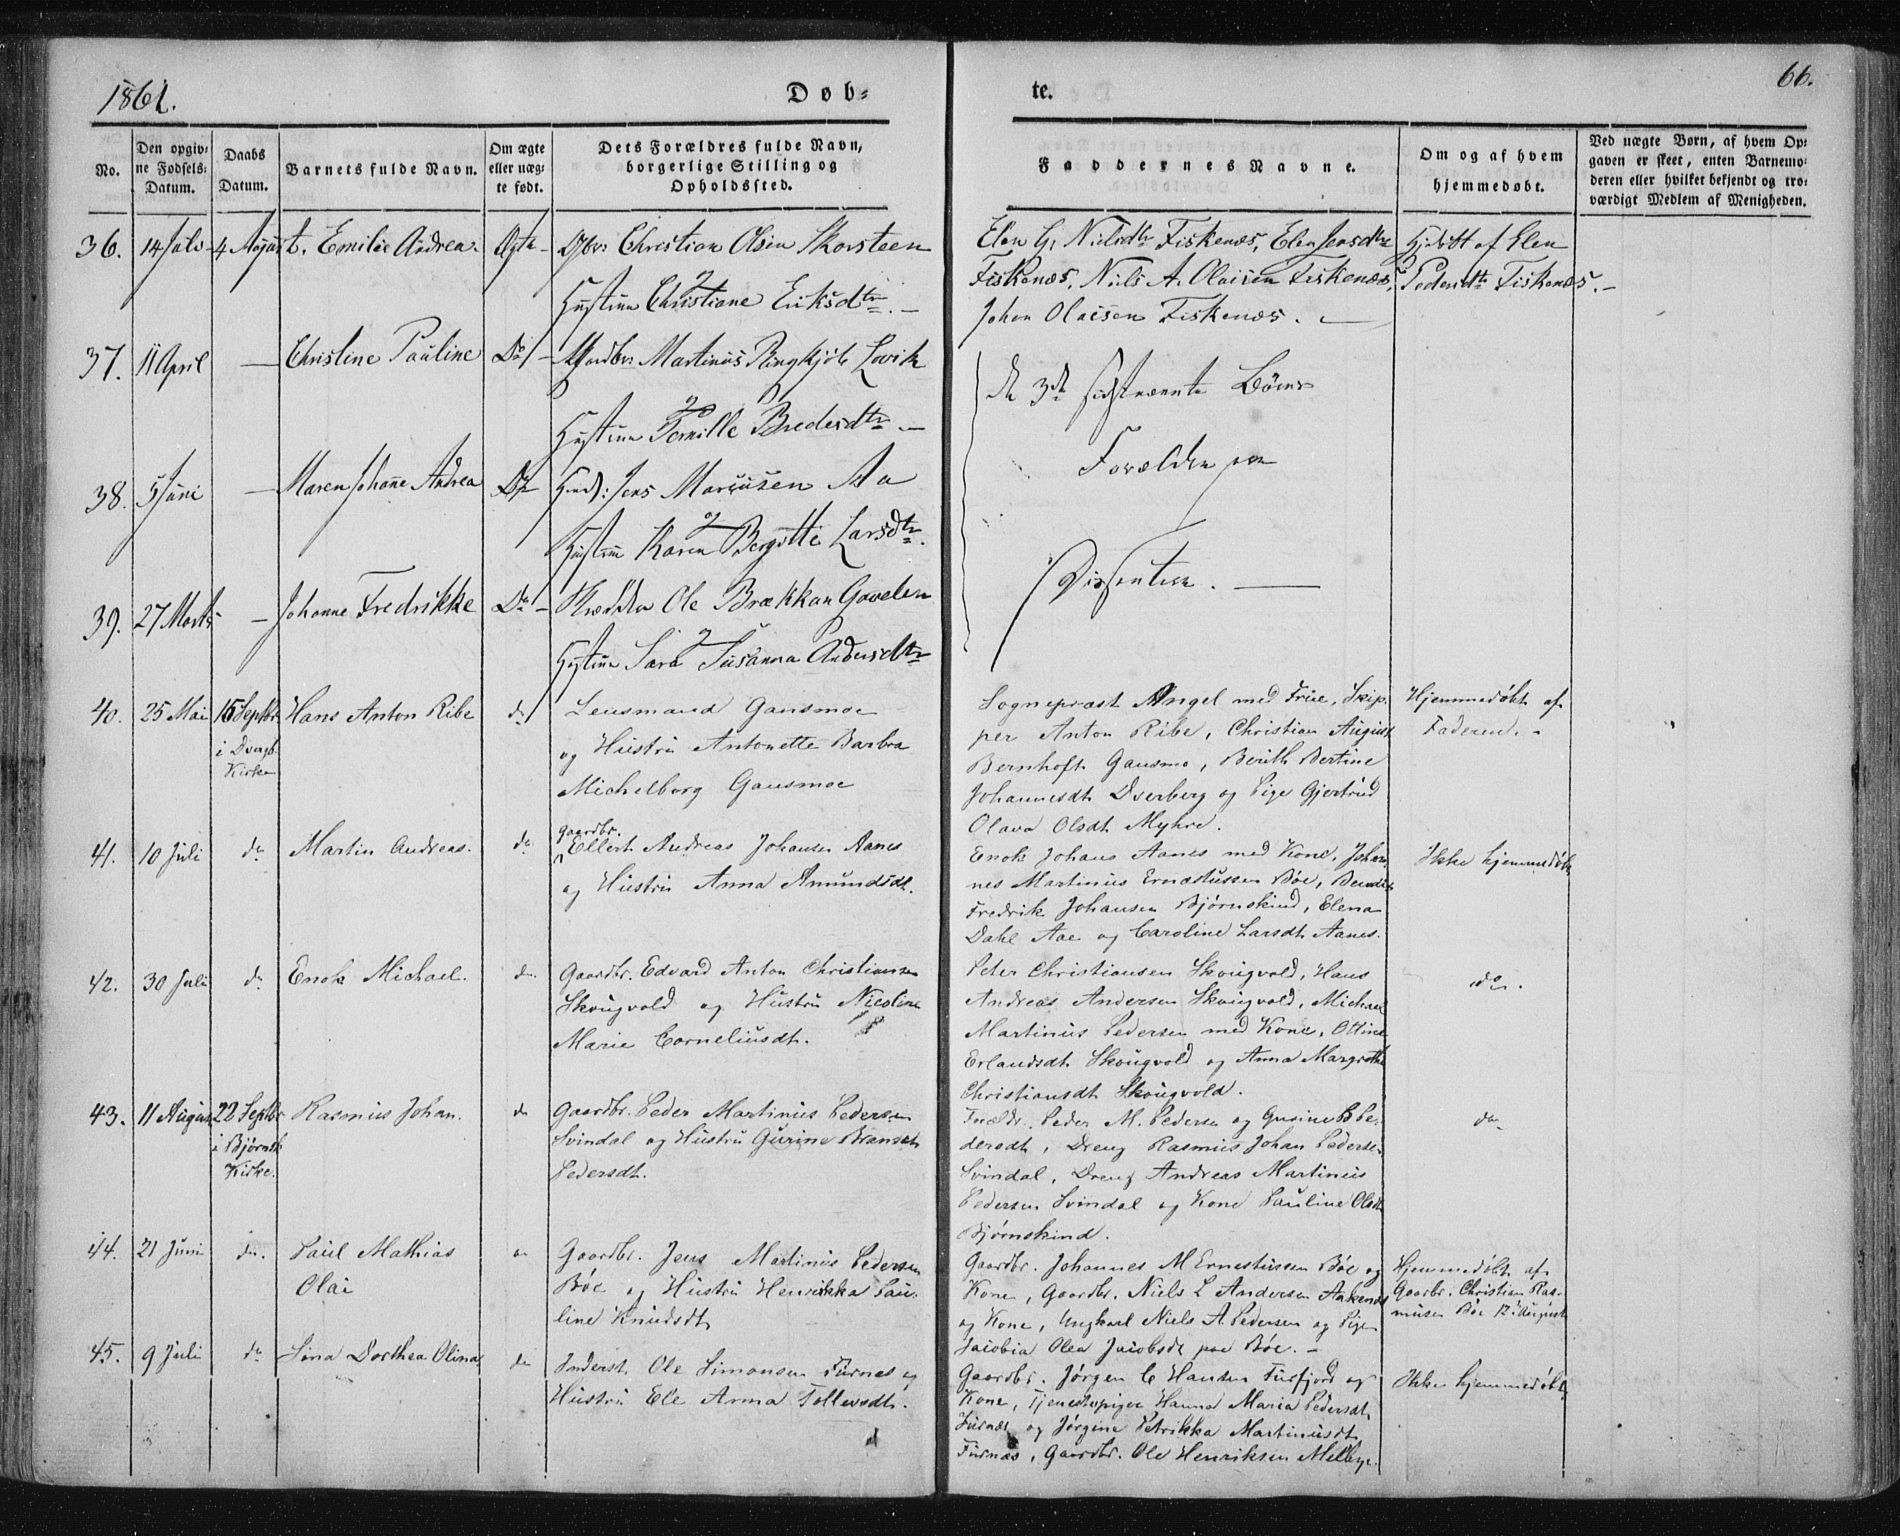 1861.
Døb-
te.
66.
No.
Den opgiv-
ne Fødsels-
Datum.
Daabs
Datum.
Barnets fulde Navn.
Om ægte
eller uæg-
te født.
Dets Forældres fulde Navn,
borgerlige Stilling og
Opholdssted.
Faddernes Navne.
Om og af hvem
hjemmedøbt.
Ved uægte Børn, af hvem Op-
gaven er skeet, enten Barnemo-
deren eller hvilket bekjendt og tro-
værdigt Medlem af Menigheden.
36. 14 Juli 4 August. Emilie Andrea Ægte Christian Olsen Skorsteen
Hustrue Christiane Eriksdtr. –
Elen G. Nielsdtr Fiskenæs, Elen Jensdtr
Fiskenæs, Niels A. Olaisen Fiskenæs,
Johan Olaisen Fiskenæs. –
Hjdøbt af Elen
Pedersdtr Fiskenæs. –
37. 11 April — Christine Pauline Do – Martinus Ringkjøb Lovik
Hustrue Pernille Bredesdtr –
38. 5 Juni — Maren Johanne Andrea Do Jens Marcusen Aa
Hustrue Karen Bergitte Larsdtr.
39. 27 Marts – Johanne Fredrikke Do – Ole Brækkan Gavelen
Hustrue Sara Susanna Andersdtr
de 3de sidstnævnte Børns
Forældre ere
Dissentere. —
40. 25 Mai 15 Septbr Hans Anton Ribe do Lensmand Gansmoe
i Dvergb.
Kirke
og Hustru Antonette Barbra
Michelborg Gansmoe
Sognepræst Angel med Frue, Skip-
per Anton Ribe, Christian August
Bernhoft Gansmo, Berith Bertine
Johannesdt. Dverberg og Pige Gjertrud
Olava Olsdt. Myhre.
Hjemmedøbt af
Faderen. -
41. 10 Juli do Martin Andreas. do
Gaardbr.
Ellert Andreas Johansen Aanes
og Hustru Anna Amundsdt.
Enok Johans Aanes med Kone, Johan-
nes Martinus Ernestussen Bøe, Bendik
Fredrik Johansen Bjørnskind, Elena
Dahl Aae og Caroline Larsdt. Aanes.
Ikke hjemmedøbt
42. 30 Juli do Enok Michael. do Gaardbr. Edvard Anton Christiansen
Skougvold og Hustru Nicoline
Marie Corneliusdt.
Peter Christiansen Skougvold, Hans
Andreas Andersen Skougvold, Michael
Martinus Pedersen med Kone, Ottine
Erlandsdt. Skougvold og Anna Margrethe
Christiansdt. Skougvold.
do.
43. 11 August 22 Septbr Rasmus Johan. do Gaardbr. Peder Martinus Pedersen
i Bjørnsk
Kirke.
Svindal og Hustru Gurine
Pedersdt.
Forældr. Peder M. Pedersen og Gurine B Pe-
dersdt, Dreng Rasmus Johan Pedersen
Svindal, Dreng Andreas Martinus
Pedersen Svindal og Kone Pauline Olsdt
Bjørnskind.
do
44. 21 Juni do. Paul Mathias
Olai
Gaardbr. Jens Martinus Pedersen
Bøe og Hustru Henrikka Pau-
line Knudsdt.
Gaardbr. Johannes M Ernestussen Bøe og
Kone, Gaardbr. Niels L Andersen Aakenæs
og Kone, Ungkarl Niels A. Pedersen og Pige
Jacobia Olea Jacobsdt paa Bøe. –
Hjemmedøbt af
Gaarbr. Christian Ras-
musen Bøe 12 August
45. 9 Juli do Sina Dorthea Olina do Inderst Ole Simonsen Furnæs og
Hustru Ele Anna Tollevsdt.
Gaardbr. Jørgen C Hansen Fusfjord og
Kone, Tjenestepiger Hanna Maria Pedersdt.
Furnæs og Jørgine Petrikka Martinusdt.
Furnæs, Gaardbr. Ole Henriksen Melbye.
Ikke hjemmedøbt